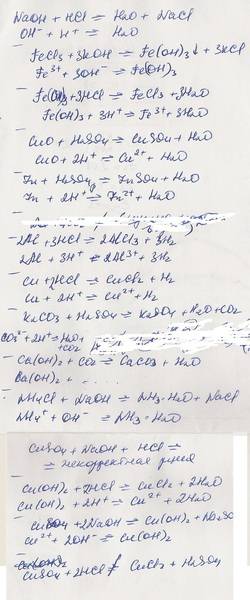 NaOH + HCl = H2O + NaCl
OH⁻ + H⁺ = H2O
FeCl3 + 3KOH = Fe(OH)3↓ + 3KCl
Fe³⁺ + 3OH⁻ = Fe(OH)3
Fe(OH)3 + 3HCl = FeCl3 + 3H2O
Fe(OH)3 + 3H⁺ = Fe³⁺ + 3H2O
CuO + H2SO4 = CuSO4 + H2O
CuO + 2H⁺ = Cu²⁺ + H2O
Zn + H2SO4 = ZnSO4 + H2O
Zn + 2H⁺ = Zn²⁺ + H2O
2Al + 3HCl = 2AlCl3 + 3H2
2Al + 3H⁺ = 2Al³⁺ + 3H2
Cu + 2HCl = CuCl2 + H2
Cu + 2H⁺ = Cu²⁺ + H2
K2CO3 + H2SO4 = K2SO4 + H2O + CO2
CO3²⁻ + 2H⁺ = H2O +
+ CO2
Ca(OH)2 + CO2 = CaCO3 + H2O
Ba(OH)2 + . . . .
NH4Cl + NaOH = NH3·H2O + NaCl
NH4⁺ + OH⁻ = NH3·H2O
CuSO4 + NaOH + HCl =
= некорректная
Cu(OH)2 + 2HCl = CuCl2 + 2H2O
Cu(OH)2 + 2H⁺ = Cu²⁺ + 2H2O
CuSO4 + 2NaOH = Cu(OH)2 + Na2SO4
Cu²⁺ + 2OH⁻ = Cu(OH)2
CuSO4 + 2HCl ≠ CuCl2 + H2SO4